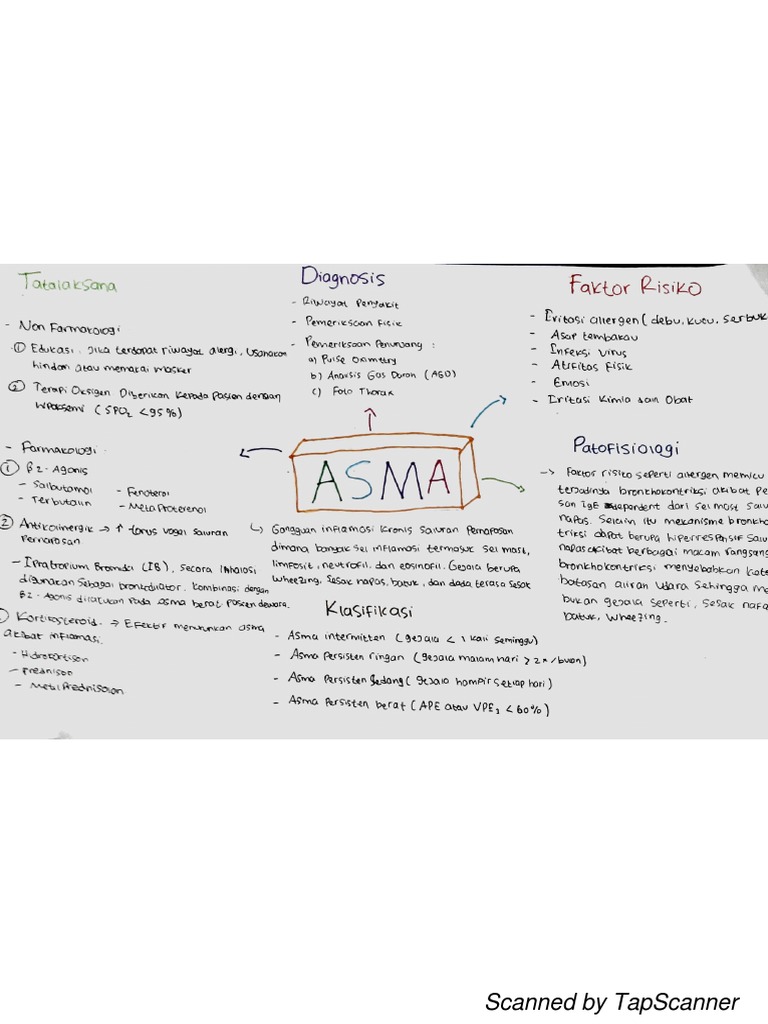 Tatalaksana
- Non Farmakologi
① Edukasi. Jika terdapat riwayat alergi, usahakan
hindari atau memakai masker
② Terapi Oksigen Diberikan kepada pasien dengan
(SPO₂ < 95%)
- Farmakologi
① β2-Agonis
- Salbutamol
- Terbutalin
- Fenoterol
- Metaproterenol
② Antikolinergik → ↑ tonus vagal saluran
Pernapasan
- Ipratropium Bromida (IB), secara inhalasi
digunakan sebagai bronkodilator. Kombinasi dengan
β2-Agonis dilakukan pada asma berat pasien dewasa.
Kortikosteroid → Efektif menurunkan asma
akibat inflamasi.
- Hidrokortison
- Prednison
- Metil Prednisolon
Diagnosis
- Riwayat Penyakit
- Pemeriksaan Fisik
- Pemeriksaan Penunjang :
a) Pulse Oximetry
b) Analisis Gas Darah (AGD)
c) Foto Thorax
ASMA
↳ Gangguan inflamasi kronis saluran Pernapasan
dimana banyak sel inflamasi termasuk sel mast,
limfosit, neutrofil, dan eosinofil. Gejala berupa
wheezing, sesak napas, batuk, dan dada terasa sesak
Klasifikasi
- Asma intermitten (gejala < 1 kali seminggu)
- Asma Persisten ringan (gejala malam hari > 2x/bulan)
- Asma Persisten Sedang (gejala hampir setiap hari)
- Asma Persisten berat (APE atau VPE₁ < 60%)
Faktor Risiko
- Iritasi allergen (debu, kutu, serbuk
- Asap tembakau
- Infeksi Virus
- Atifitas Fisik
- Emosi
- Iritasi Kimia dan Obat
Patofisiologi
→ Faktor risiko seperti allergen memicu
terjadinya bronkhokontriksi akibat Pe
san IgE dependent dari sel mast salu
napas. Selain itu mekanisme bronkho
triksi dapat berupa hiperresponsif salu
napas akibat berbagai macam rangsang
bronkhokontriksi menyebabkan kete
batasan aliran udara sehingga me
bukan gejala seperti, sesak nafa
batuk, wheezing.
Scanned by TapScanner